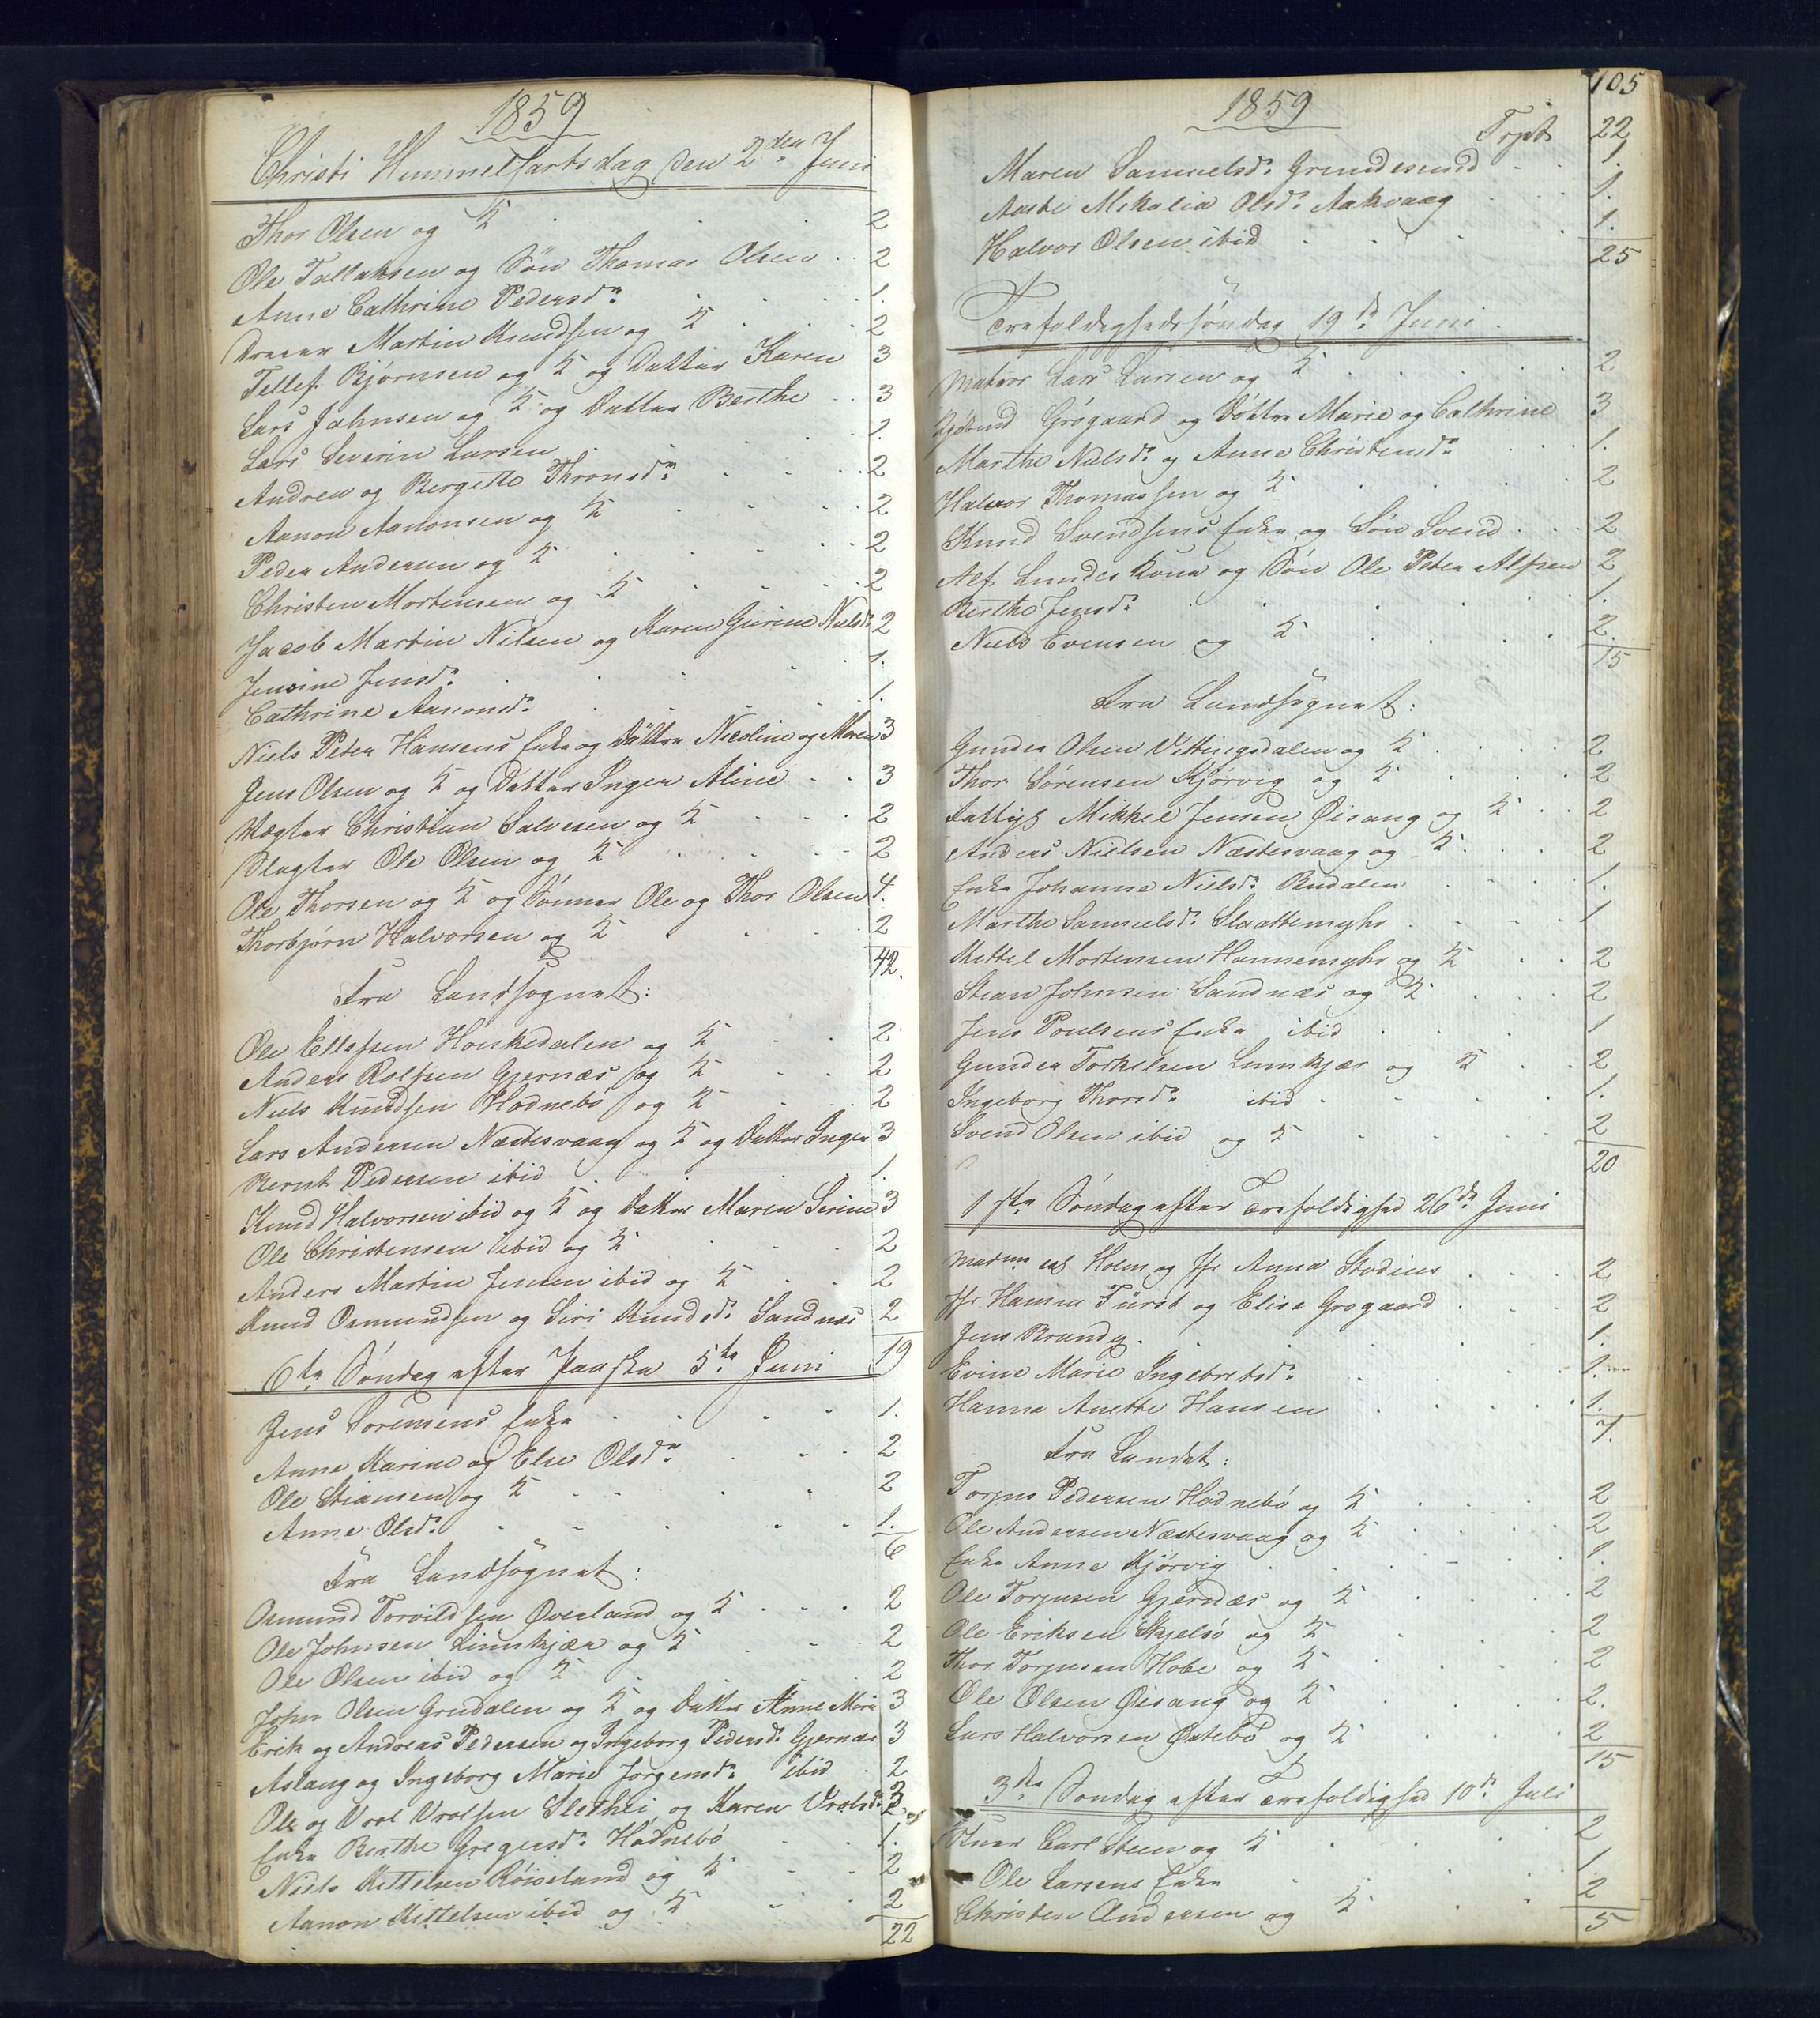 1859
Christi Himmelfartsdag den 2den Juni
Thor Olsen og K . . . 2
Ole Tallaksen og Søn Thomas Olsen . . 2
Anne Cathrine Pedersdr . . . 1.
Dreier Martin Knudsen og K . . . 2
Tellef Bjørnsen og K og Datter Karen 3
Lars Jahnsen og K og Datter Berthe . . 3
Lars Severin Larsen . . . 1.
Andrea og Bergitte Thronsdr . . . 2
Aanon Aanonsen og K . . . 2
Peder Andersen og K . . . 2
Christen Mortensen og K . . . 2
Jacob Martin Nilsen og Karen Gurine Nielsdr 2
Jensine Jensdr . . . 1.
Cathrine Aanonsdr . . . 1.
Niels Peter Hansens Enke og Døttre Nicoline og Maren 3
Jens Olsen og K og Datter Inger Aline . . 3
Vægter Christian Salvesen og K . . . 2
Slagter Ole Olsen og K . . . 2
Ole Thorsen og K og Sønner Ole og Thor Olsen 4.
Thorbjørn Halvorsen og K . . . 2
42.
Fra Landsognet:
Ole Ellefsen Haukedalen og K . . 2
Anders Rolfsen Gjernæs og K . . 2
Niels Knudsen Hødnebø og K . . 2
Lars Andersen Næstesvaag og K og Datter Inger 3
Bernt Pedersen ibid . . . 1.
Knud Halvorsen ibid og K og Datter Maren Serine 3
Ole Christensen ibid og K . . . 2
Anders Martin Jensen ibid og K . . 2
Knud Osmundsen og Siri Knudsdr Sandnæs 2
19
6te Søndag efter Paaske 5te Juni
Jens Sørensens Enke . . . 1.
Anne Karine og Else Olsdr . . . 2
Ole Stiansen og K . . . 2
Anne Olsdr . . . 1.
6
Fra Landsognet:
Osmund Torvildsen Øverland og K . . . 2
Ole Johnsen Linnkjær og K . . 2
Ole Olsen ibid og K . . . 2
John Olsen Grudalen og K og Datter Anne Marie 3
Erik og Andreas Pedersen og Ingeborg Pedersdr Gjernæs 3
Aslaug og Ingeborg Marie Jørgensdr ibid . 2
Ole og Vrol Vrolsen Slethei og Karen Vrolsdr 3
Enke Berthe Gregersdr Hødnebø . . 1.
Niels Kittelsen Røiseland og K . . 2
Aanon Kittelsen ibid og K . . 2
22
105
1859
Trpt 22
Maren Samuelsdr Grundesund . . 1.
Aaste Mikalia Olsdr Aakvaag . . 1.
Halvor Olsen ibid . . . 1.
25
Trefoldighedssøndag 19de Juni.
Matros Lars Larsen og K . . . 2
Grøgaard og Døttre Marie og Cathrine 3
Marthe Nielsdr og Anne Christensdr . . 1.
Halvor Thomassen og K . . . 2
Knud Svendsens Enke og Søn Svend . . . 2
Alf Lundes Kone og Søn Ole Peter Alfsen 2
Berthe Jensdr . . . 1.
Niels Evensen og K . . . 2.
15
Fra Landsognet:
Gunder Olsen Vittingsdalen og K . . . 2
Thor Sørensen Kjørvig og K . . . 2
Fattigf. Mikkel Jensen Øisang og K . . 2
Anders Nielsen Næstesvaag og K . . . 2
Enke Johanne Nielsdr Rødalen . . . 1.
Marthe Samuelsdr Slaattemyhr . . . 1
Kittel Mortensen Hannemyhr og K . . 2
Stian Johnsen Sandnæs og K . . . 2
Jens Poulsens Enke ibid . . . 1
Gunder Torkelsen Linnkjær og K . . 2
Ingeborg Thorsdr ibid . . . 1.
Svend Olsen ibid og K . . . 2
20
1ste Søndag efter Trefoldighed 26de Juni
Madme Holm og Jfr Anna Stadius . . . 2
Jfr Hanna Fürst og Elise Grøgaard . . . 2
Jens Brandg. . . . 1.
Evine Marie Ingebretsdr . . . 1.
Hanna Anette Hansen . . . 1.
7.
Fra Landet:
Torjus Pedersen Hødnebø og K . . . 2
Ole Andersen Næstesvaag og K . . . 2
Enke Anne Kjørvig . . . 1.
Ole Torjusen Gjernæs og K . . . 2
Ole Eriksen Skjelsø og K . . . 2
Thor Torjusen Hobe og K . . . 2
Ole Olsen Øisang og K . . . 2.
Lars Halvorsen Østebø og K . . . 2
15
3die Søndag efter Trefoldighed 10de Juli
Carl Steen og K . . . 2
Ole Larsens Enke . . . 1.
Christen Andersen og K . . . 2
5